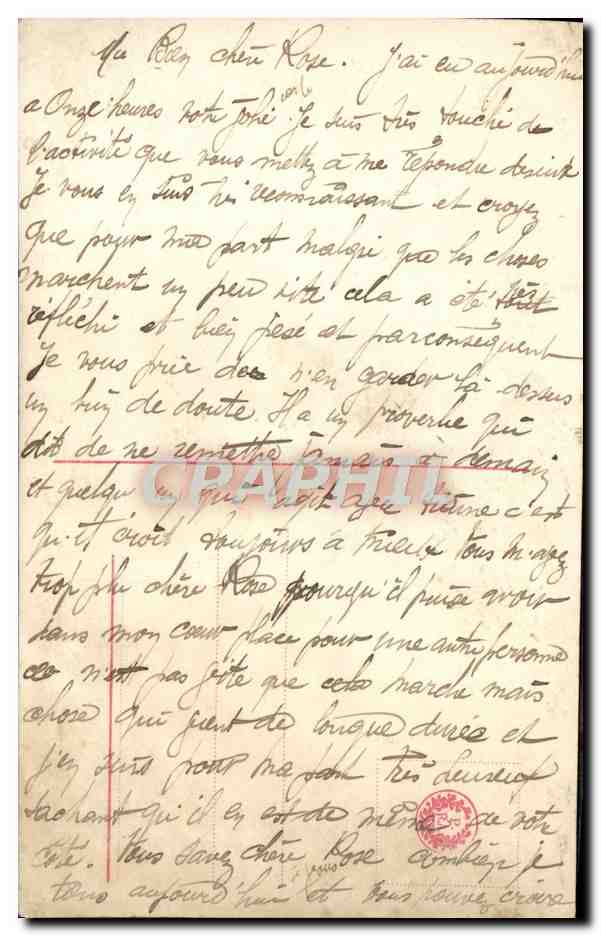 Ma Bien chère Rose. J'ai eu aujourd'hui
a Onze heures votre jolie carte Je suis très touché de
l'activité que vous mettez à me répondre
Je vous en suis très reconnaissant et croyez
que pour ma part malgré que les choses
marchent un peu vite cela a été très
réfléchi et bien pesé et parconséquent
Je vous prie de n'en garder là-dessus
un brin de doute. Il a un proverbe qui
dit de ne remettre jamais à demain
CPARPHIL
et quelqu'un qui agit c'est
qu'il croit toujours à mieux Vous m'avez
trop plu chère Rose pourqu'il puise avoir
dans mon cœur place pour une autre personne
ce n'est pas vite que cela marche mais
chose qui vient de longue durée et
j'en suis pour ma part très heureux
sachant qu'il en est de même de votre
côté. Vous savez chère Rose combien je
vous
aujourd'hui et vous pouvez croire